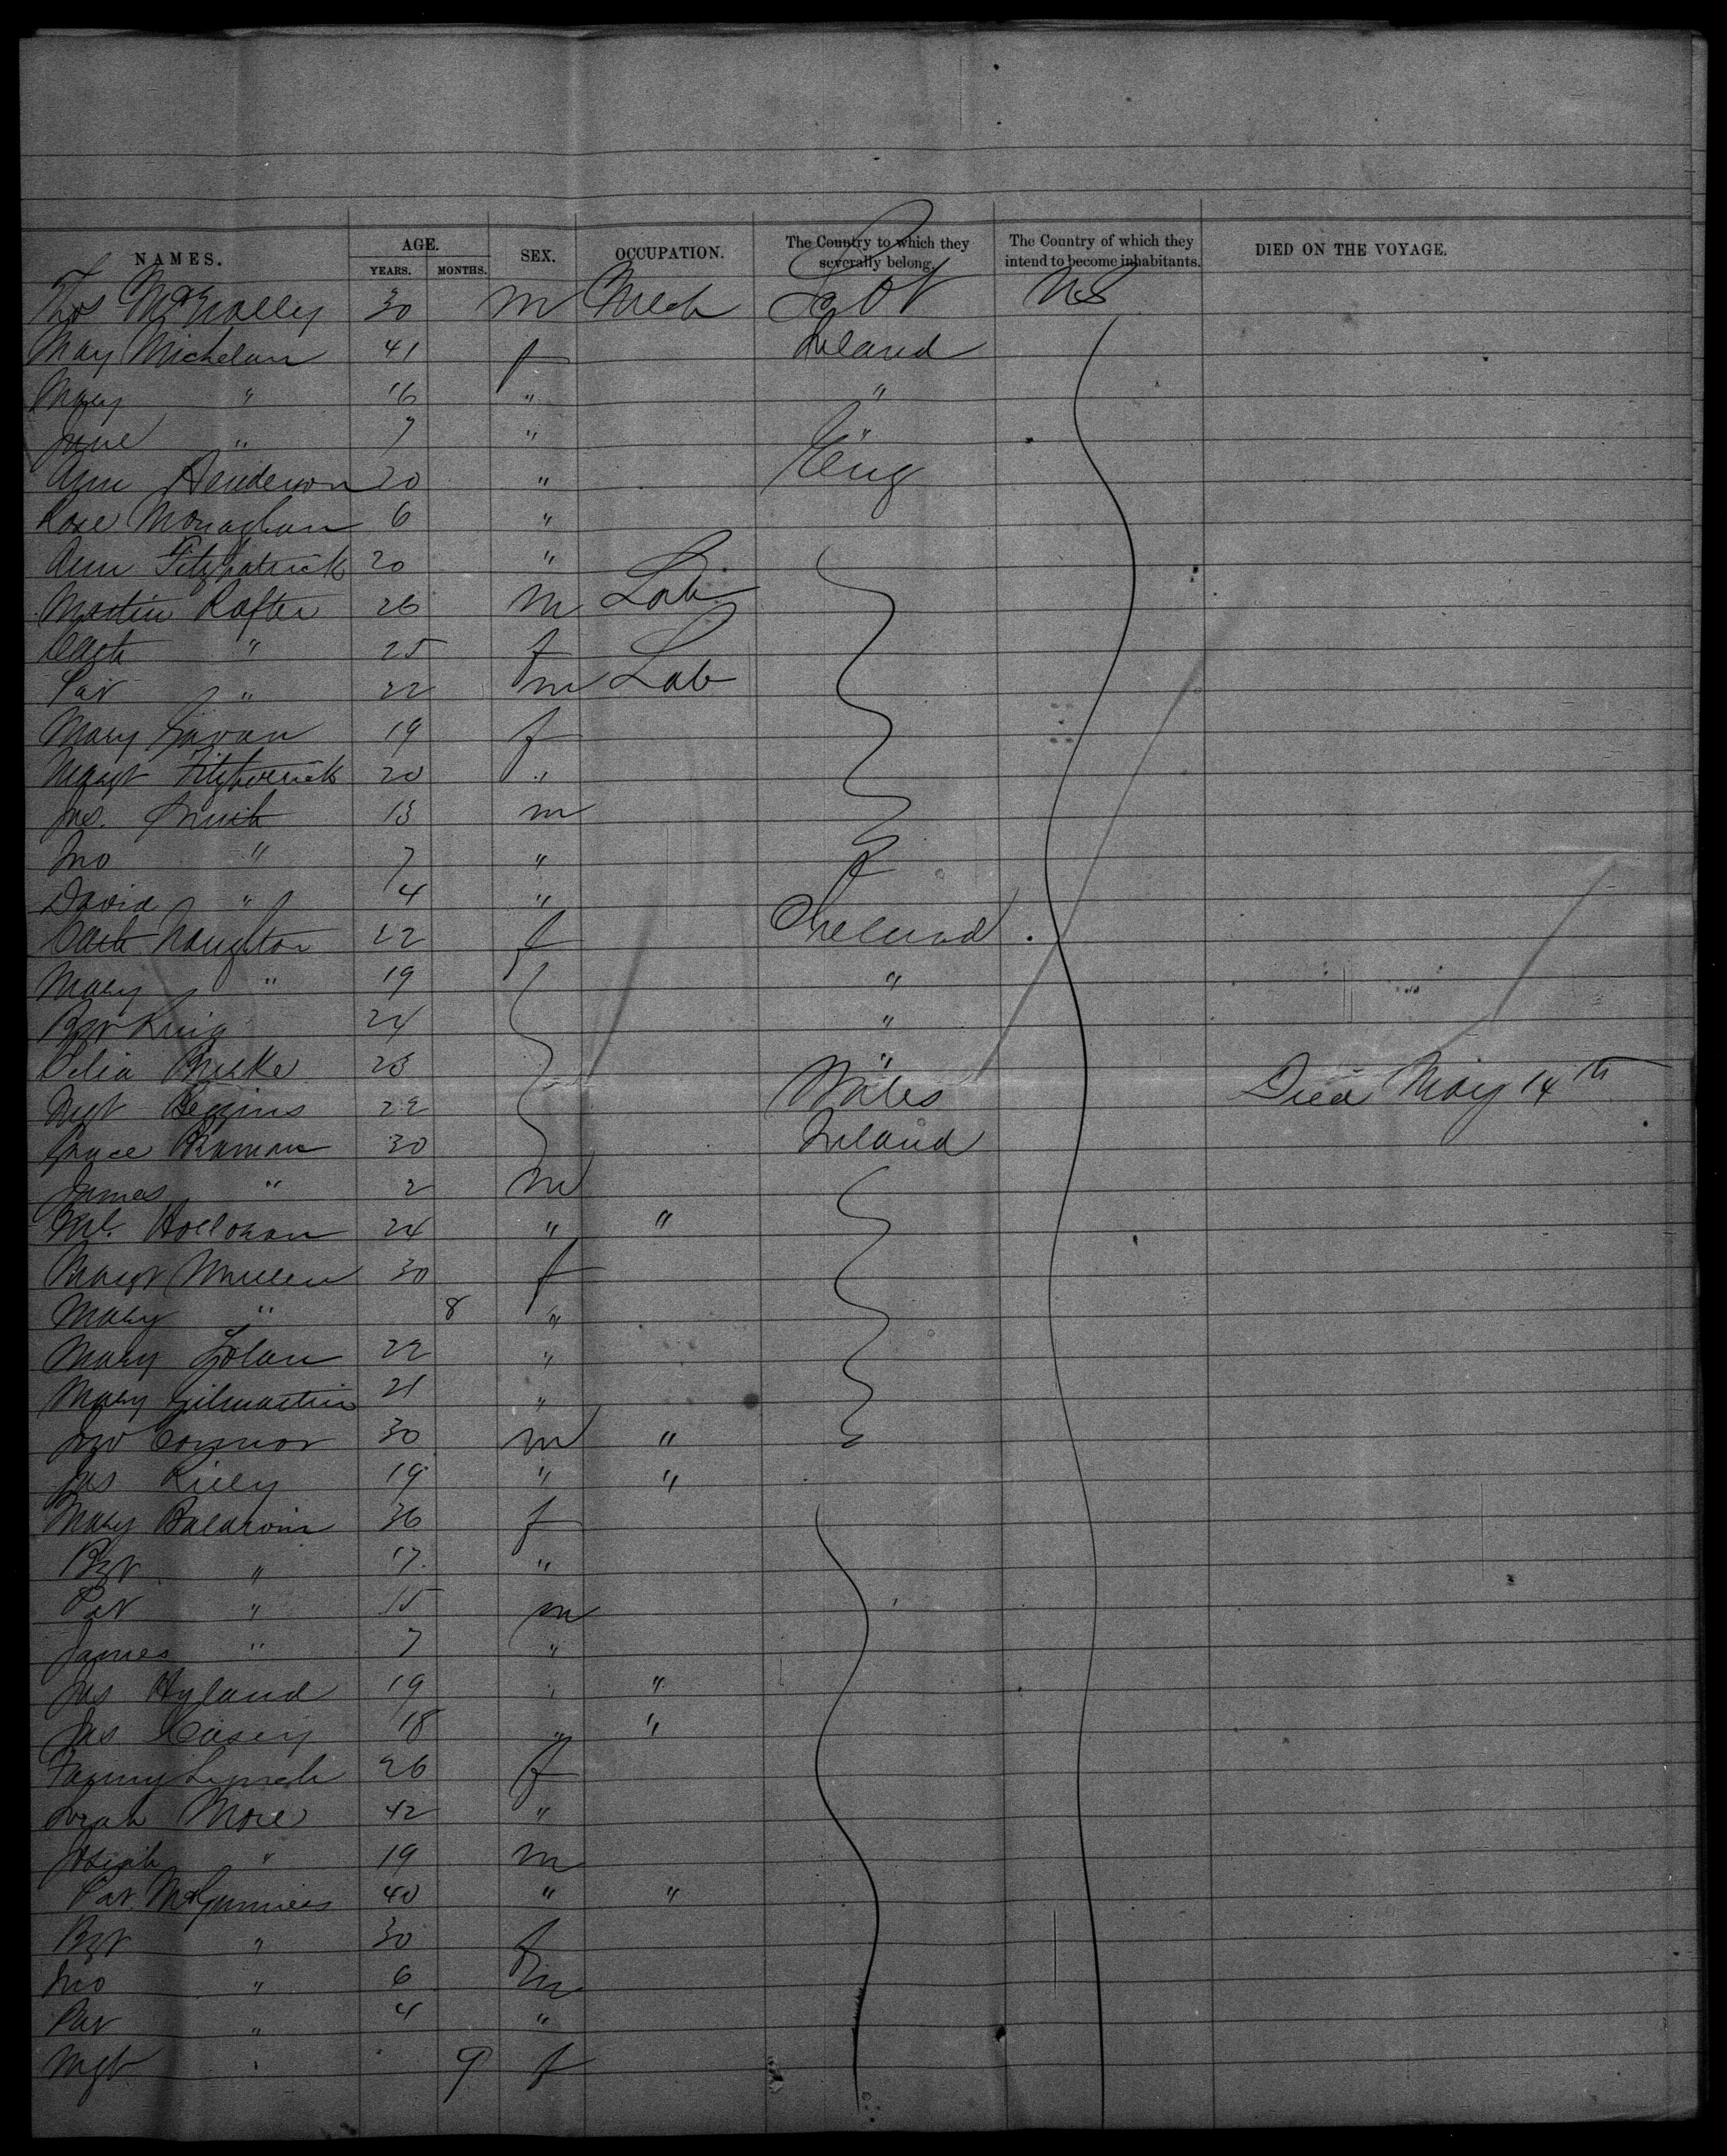 NAMES. AGE. YEARS. MONTHS. SEX. OCCUPATION. The Country to which they severally belong. The Country of which they intend to become inhabitants. DIED ON THE VOYAGE.
Thos McNally 30 m Mech US
May Michelan 41 f Ireland
Mary " 16 " "
Jane " 7 " "
Ann Henderson 20 " Eng
Rose Monaghan 6 "
Ann Fitzpatrick 20 "
Martin Rafter 26 m Lab
Cath " 25 f
Pat " 22 m Lab
Mary Gavan 19 f
Margt Fitzpatrick 20 "
Jas. Smith 13 m
Jno " 7 "
David " 4 "
Cath Naughton 22 f Ireland
Mary " 19 "
Bgt King 24 "
Delia Burke 23 "
Mgt Beggins 22 Wales Died May 14th
Grace 30 Ireland
James " 2 m
Ml. Hollohan 24 " "
Margt Mullen 30 f
Mary " 8 "
Mary Golan 22 "
Mary Gilmartin 21 "
Connor 30 m "
Jas Kiley 19 " "
Mary Baldwin 36 f
Bgt " 17 "
Pat " 15 m
James " 7 "
Jas Hyland 19 " "
Jas Casey 18 " "
Fanny Lynch 26 f
Sarah More 42 "
Joseph " 19 m
Pat McGuiness 40 " "
Bgt " 30 f
Jno " 6 m
Pat " 4 "
Mgt " 9 f